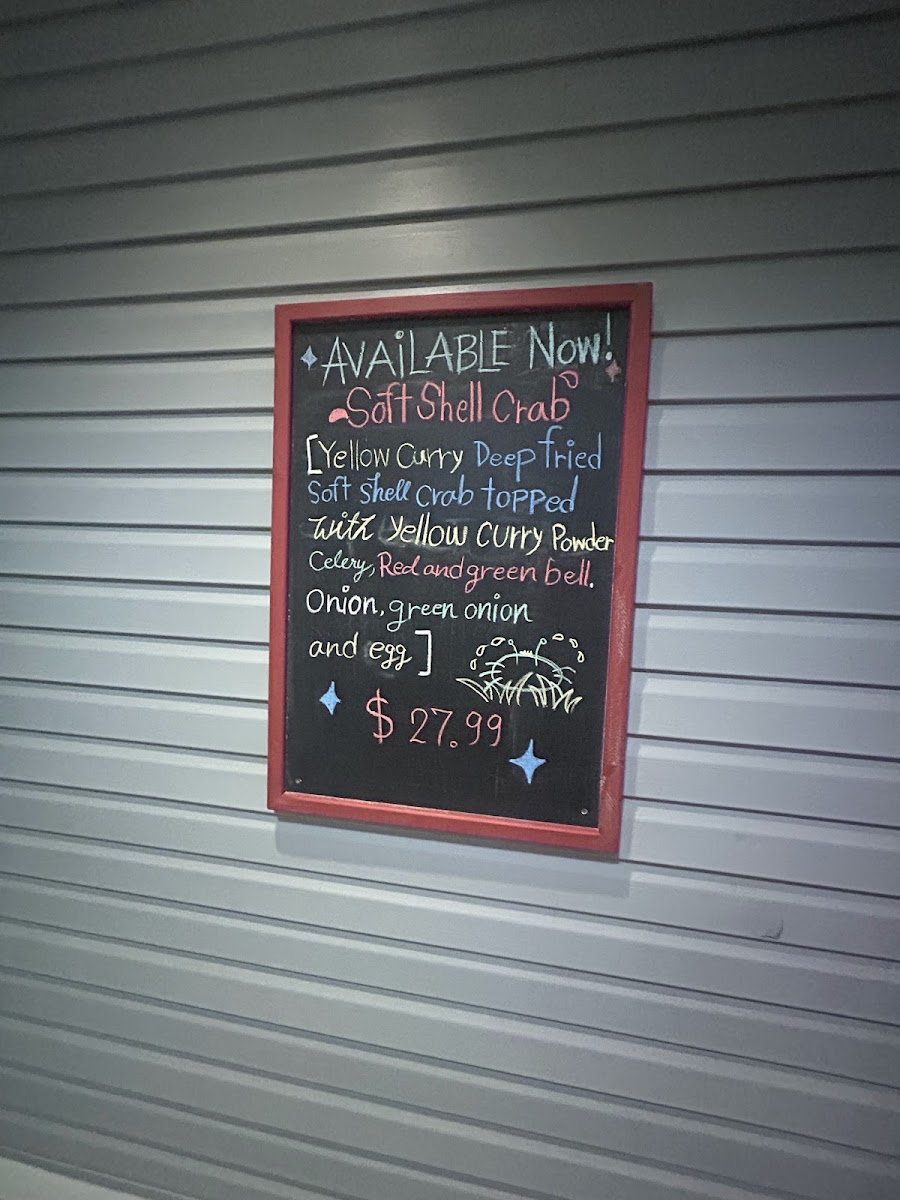 AVAiLABLE Now!
Soft Shell Crab
[Yellow Curry Deep fried
Soft shell Crab topped
with Yellow Curry Powder
Celery, Red and green bell.
Onion, green onion
and egg]
$ 27.99